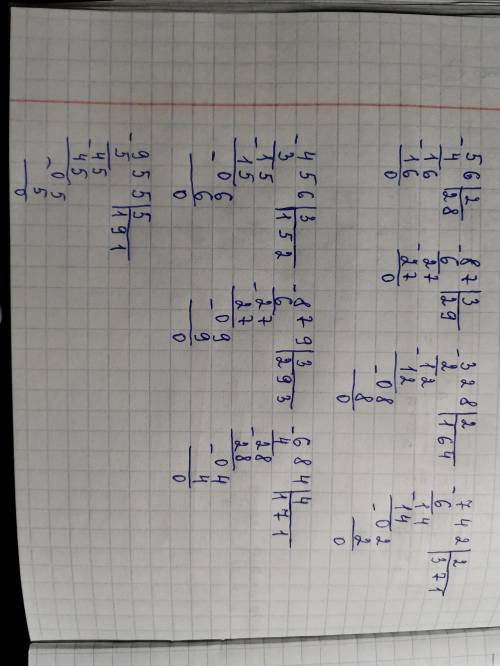 -56|2 -87|3 -328|2 -742|2
4|28 6|29 2|164 6|371
-16 -27 -12 -14
16 27 12 14
0 0 -08 -02
8 2
0 0
-456|3 -879|3 -684|4
3|152 6|293 4|171
-15 -27 -28
15 27 28
-06 -09 -04
6 9 4
0 0 0
-955|5
5|191
-45
45
-05
5
0